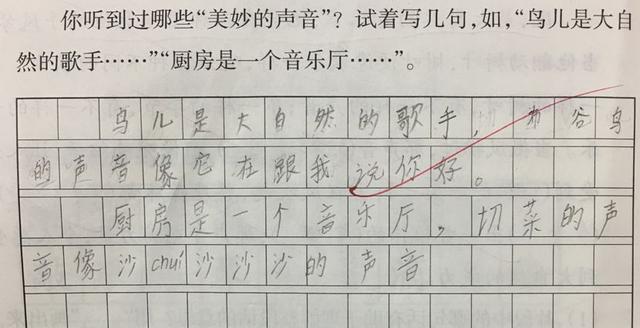 你听到过哪些“美妙的声音”？试着写几句，如，“鸟儿是大自
然的歌手……”“厨房是一个音乐厅……”。
鸟儿是大自然的歌手，布谷鸟
的声音像它在跟我说你好。
厨房是一个音乐厅，切菜的声
音像沙chuí沙沙沙的声音